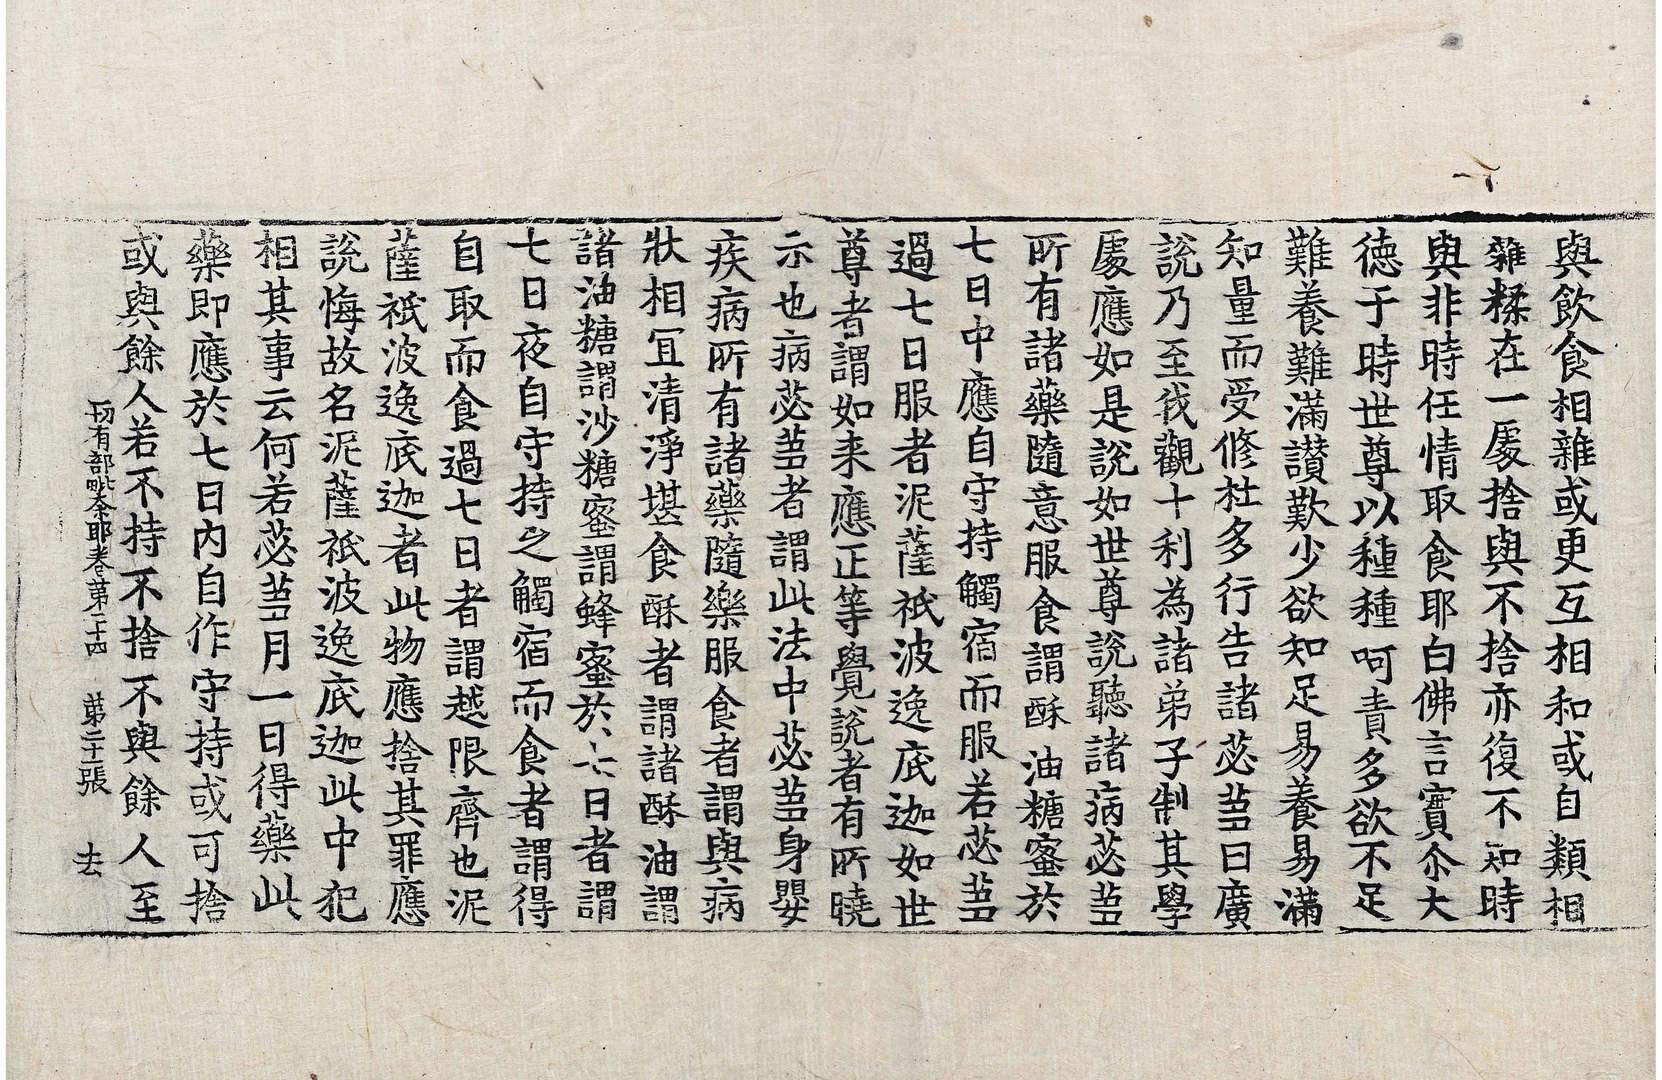 與飲食相雜或更互相和或自類相
雜糅在一處捨與不捨亦復不知時
與非時任情取食耶白佛言實尒大
德于時世尊以種種呵責多欲不足
難養難滿讃歎少欲知足易養易滿
知量而受修杜多行告諸苾芻曰廣
說乃至我觀十利為諸弟子制其學
處應如是說如世尊說聽諸病苾芻
所有諸藥隨意服食謂酥油糖蜜於
七日中應自守持觸宿而服若苾芻
過七日服者泥薩祇波逸底迦如世
尊者謂如来應正等覺說者有所曉
示也病苾芻者謂此法中苾芻身嬰
疾病所有諸藥隨樂服食者謂與病
狀相冝清淨堪食酥者謂諸酥油謂
諸油糖謂沙糖蜜謂蜂蜜於七日者謂
七日夜自守持之觸宿而食者謂得
自取而食過七日者謂越限齊也泥
薩祇波逸底迦者此物應捨其罪應
說悔故名泥薩祇波逸底迦此中犯
相其事云何若苾芻月一日得藥此
藥即應於七日內自作守持或可捨
或與餘人若不持不捨不與餘人至
一切有部毗奈耶卷第二十四 第二十一張 去